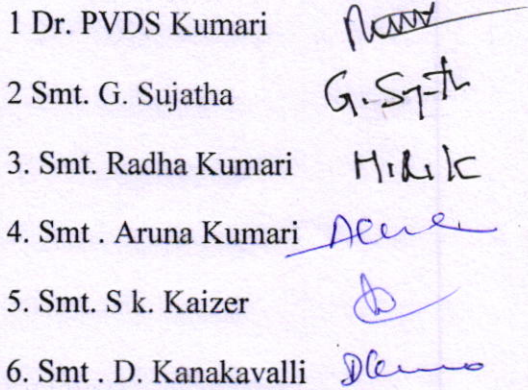 1 Dr. PVDS Kumari
2 Smt. G. Sujatha G. Sujth
3. Smt. Radha Kumari
4. Smt . Aruna Kumari
5. Smt. S k. Kaizer
6. Smt . D. Kanakavalli